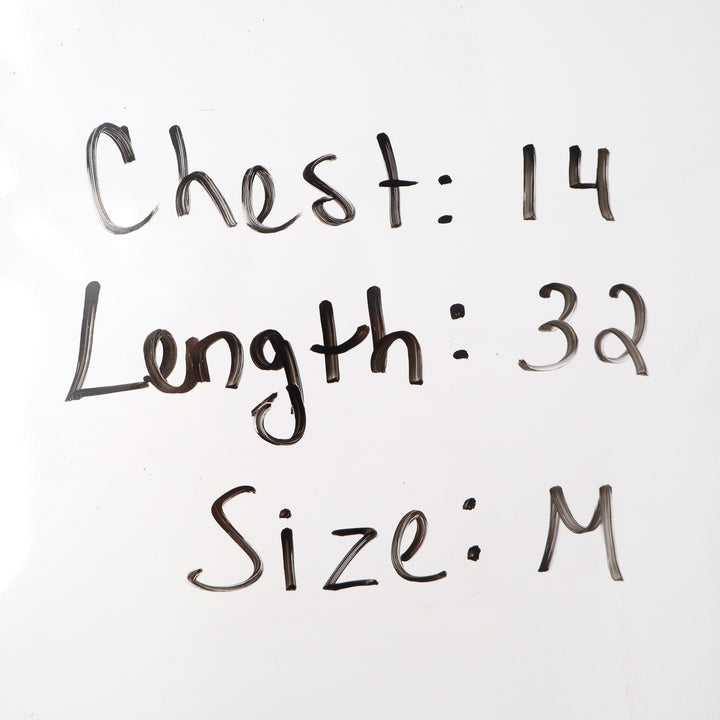 Chest: 14
Length: 32
Size: M